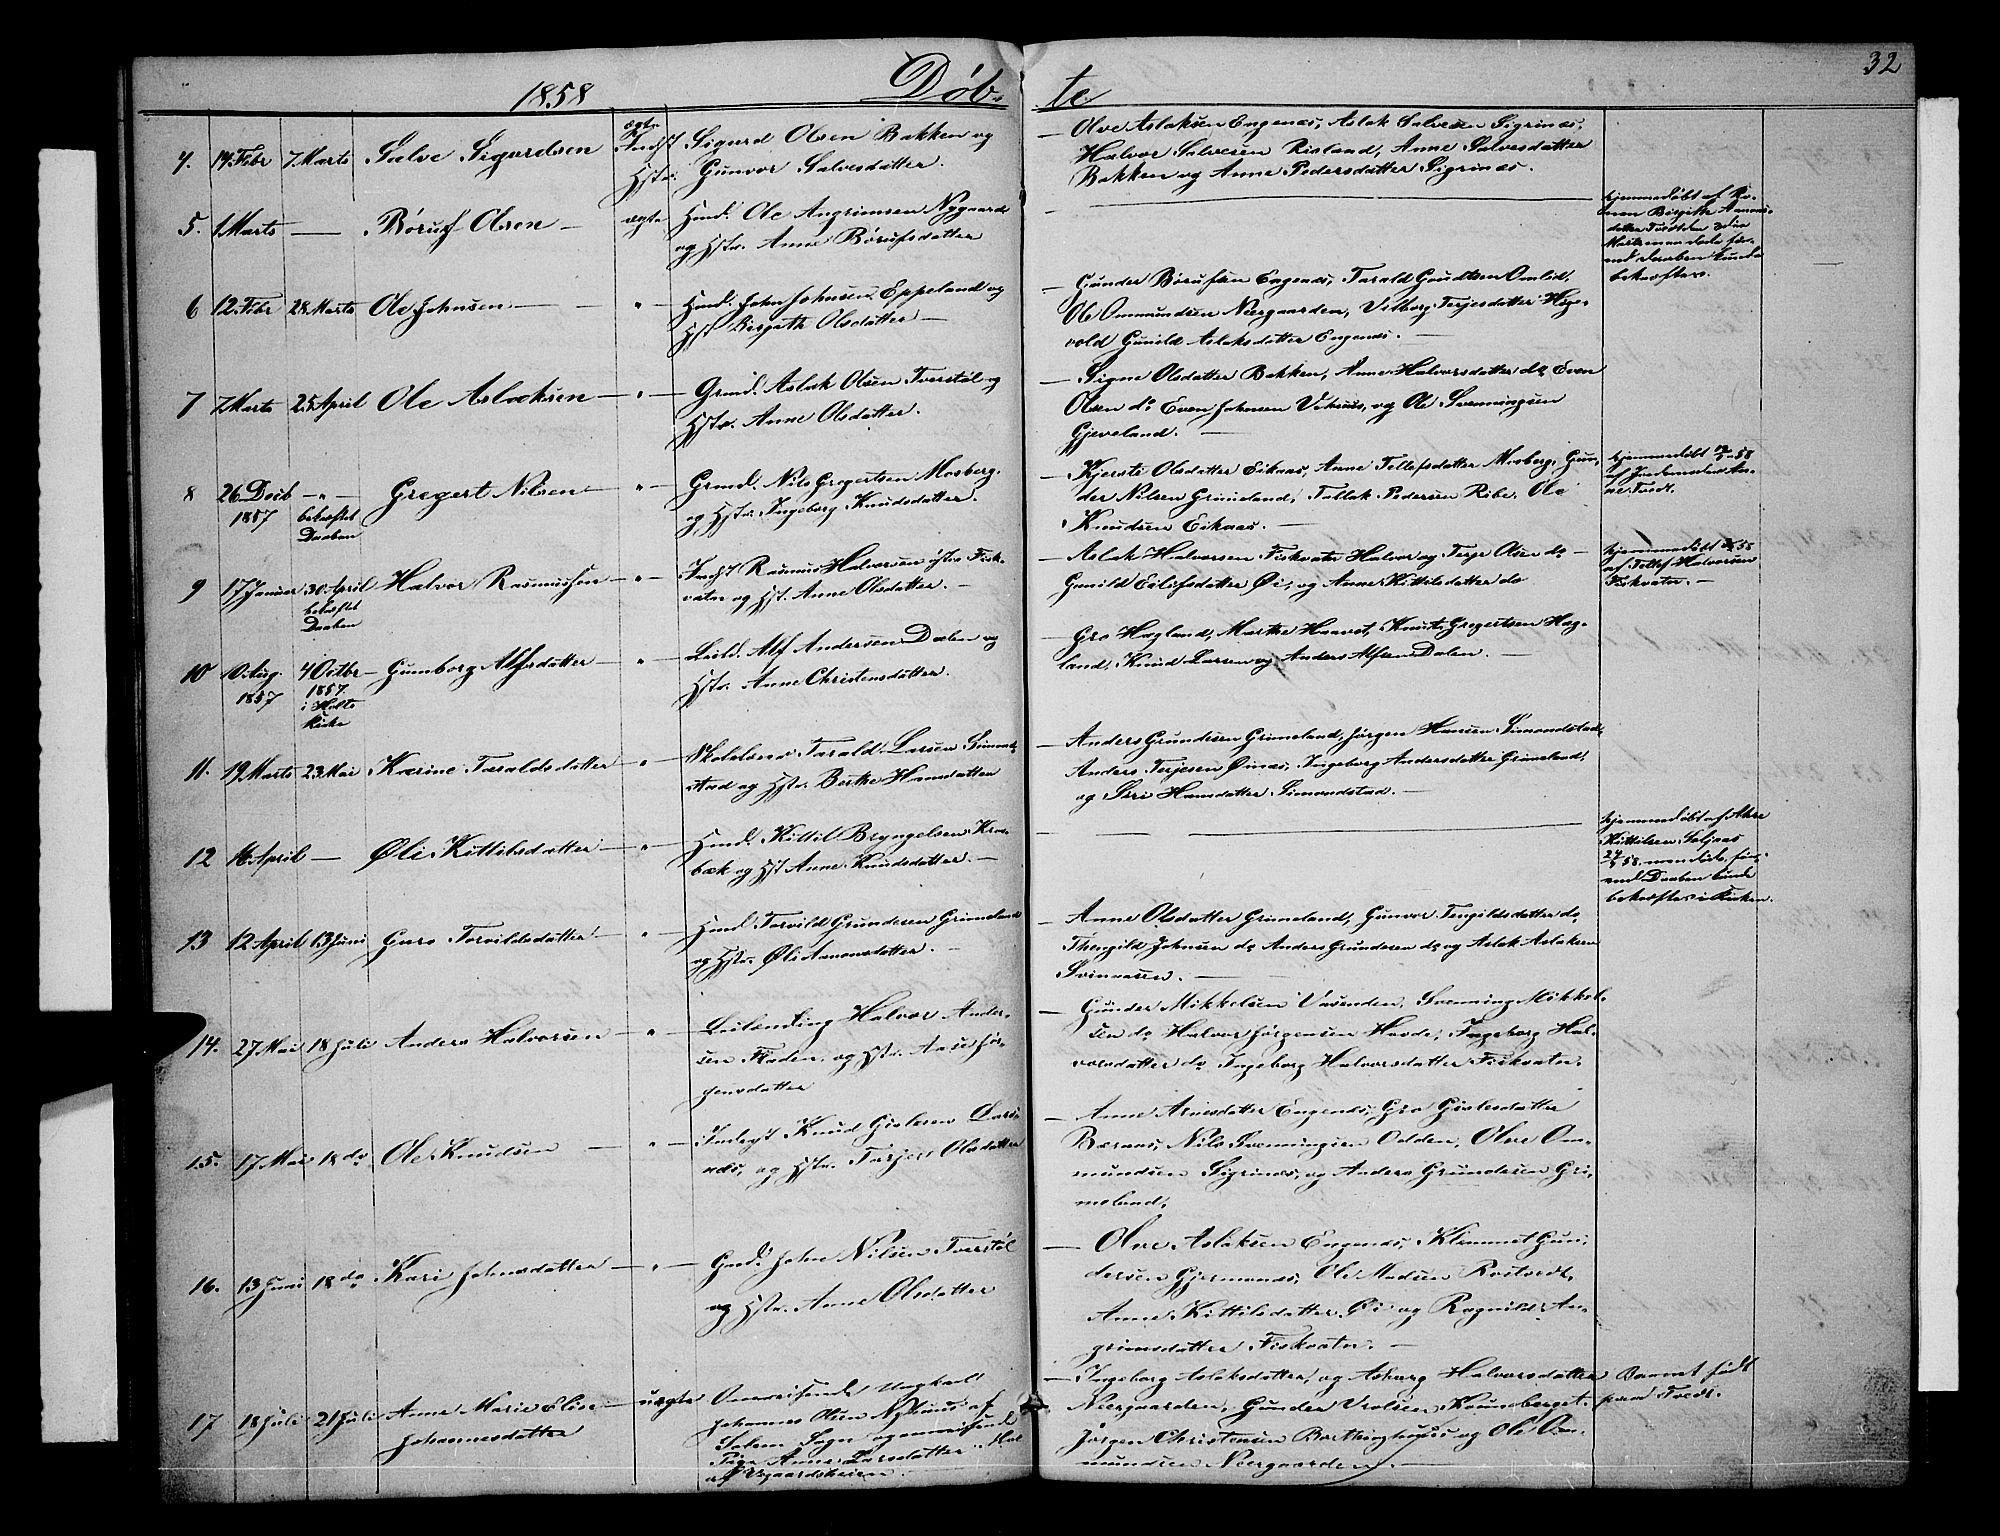 32
1858 Døbte
4. 14 Febr 7 Marts Salve Sigurdsen ægte Sigurd Olsen Bakken og
Gunvor Salvesdatter.
Olve Aslaksen Engenæs, Aslak Salvesen Sigrinæs,
Halvor Salvesen Risland, Anne Salvesdatter
Bakken og Anne Pedersdatter Sigrinæs.
5. 1 Marts — Børuf Olsen — ægte Hmd. Ole Angrimsen Nygaard
og Hstr. Anne Børufsdatter
hjemmedøbt af
Birgitte
men døde før-
end Daaben kunde
bekræftes.
6 12 Febr 28 Marts Ole Johnsen — " — Hmd. John Johnsen Eppeland og
Hst. Birgith Olsdatter —
Gunder Børufsen Engenæs, Tarald Omlid,
Ole Ommundsen Neergaarden, Vilborg Terjesdatter Hege-
vold Gunild Aslaksdatter Engenæs. —
7 7 Marts 25 April Ole Aslaksen — " — Grmd. Aslak Olsen Tverstøl og
Hstr. Anne Olsdatter.
Signe Olsdatter Bakken, Anne Halvorsdatter do, Even
Olsen do Even Johnsen og Ole Svenningsen
Gjeveland. —
8 26 Decb — " — Gregert Nilsen — " — Grmd. Nils Gregertsen Mosberg
1857 bekræftet og Hstr. Ingeborg Knudsdatter.
Daaben
Kjerste Olsdatter Eikaas, Anne Tellefsdatter Mosberg, Gun-
der Nilsen Grimeland, Tallak Pedersen Ribe, Ole
Knudsen Eikaas. —
hjemmedøbt 58
af Jordemoder An-
ne Tvedt.
9 17 Januar 30 April Halvor Rasmussen — " — Indst Rasmus Halvorsen østre Fisk-
bekræftet vatn og Hst. Anne Olsdatter. —
Daaben
Aslak Halvorsen Fiskvatn Halvor og Terje Olsen do —
Gunild Eilifsdatter Øi, og Anne Kittilsdatter do
hjemmedøbt 58
af Tellef Halvorsen
Fiskvatn. —
10 10 Aug. 4 Octbr Gunborg Alfsdatter — " — Leild. Alf Andersen Dalen og
1857 1857. Hstr. Anne Christensdatter.
i Holts
Kirke
Gro Hagland, Marthe Haavet, Knut Gregertsen Hag-
land, Knud Larsen og Anders Alfsen Dalen. —
11. 19 Marts 23 Mai Karine Taraldsdatter — " — Skolelærer Tarald Larsen Simond-
stad og Hstr. Berthe Hansdatter
Anders Gundersen Grimeland, Jørgen Hansen Simondstad,
Anders Terjesen Ørnæs, Ingeborg Andersdatter Grimeland,
og Siri Hansdatter Simondstad. —
12 16 April — Øli Kittilsdatter — " — Hmd. Kittil Bryngelsen Kros-
bæk og Hst Anne Knudsdatter. —
hjemmedøbt af
Kittilsen Seljaas
58. men døde, før-
end Daaben kunde
bekræftes i Kirken.
13 12 April 13 Juni Guro Torvildsdatter — " — Hmd Torvild Gundersen Grimeland
og Hstr. Øli Aanonsdatter. —
Anne Olsdatter Grimeland, Gunvor Tengildsdatter do
Thengild Johnsen do Anders Gundersen do og Aslak Aslaksen
Svinaasen. —
14. 27 Mai 18 Juli Anders Halvorsen — " — Leilænding Halvor Ander-
sen Fladen, og Hstr. Aase Jør-
gensdatter
Gunder Mikkelsen Vasenden, Svenning Mikkel-
sen do Halvor Jørgensen Hovde, Ingeborg Hal-
vorsdatter do Ingeborg Halvorsdatter Fiskvatn.
15. 17 Mai 18 do Ole Knudsen — " — Inderst Knud Gislesen
og Hstr. Torjer Olsdatter
Anne Arnesdatter Engenæs, Gro Gislesdatter
Beraas, Nils Svenningsen Odden, Olve Om-
mundsen Sigrinæs, og Anders Gundersen Gri-
meland.
16. 13 Juni 18 do Kari Johnsdatter — " — Gmd. John Nilsen Tverstøl
og Hstr. Anne Olsdatter
Olve Aslaksen Engenæs, Klemmet Gun-
dersen Gjermonæs, Ole Madsen Rostvedt,
Anne Kittilsdatter Øi og Ragnild An-
grimsdatter Fiskvatn. —
17 18 Juli 21 Juli Anne Marie Elise uægte Omreisende Ungkarl
Johannesdatter Johannes Olsen Nyelund af
Salem Sogn og omreisende
Pige Anne Larsdatter
af Vegaardsheien. —
Ingeborg Aslaksdatter, og Asborg Halvorsdatter
Neergaarden, Gunder Kaunberget
Jørgen Christensen og Ole Om-
mundsen Neergaarden. —
Barnet født
paa Tvedt.